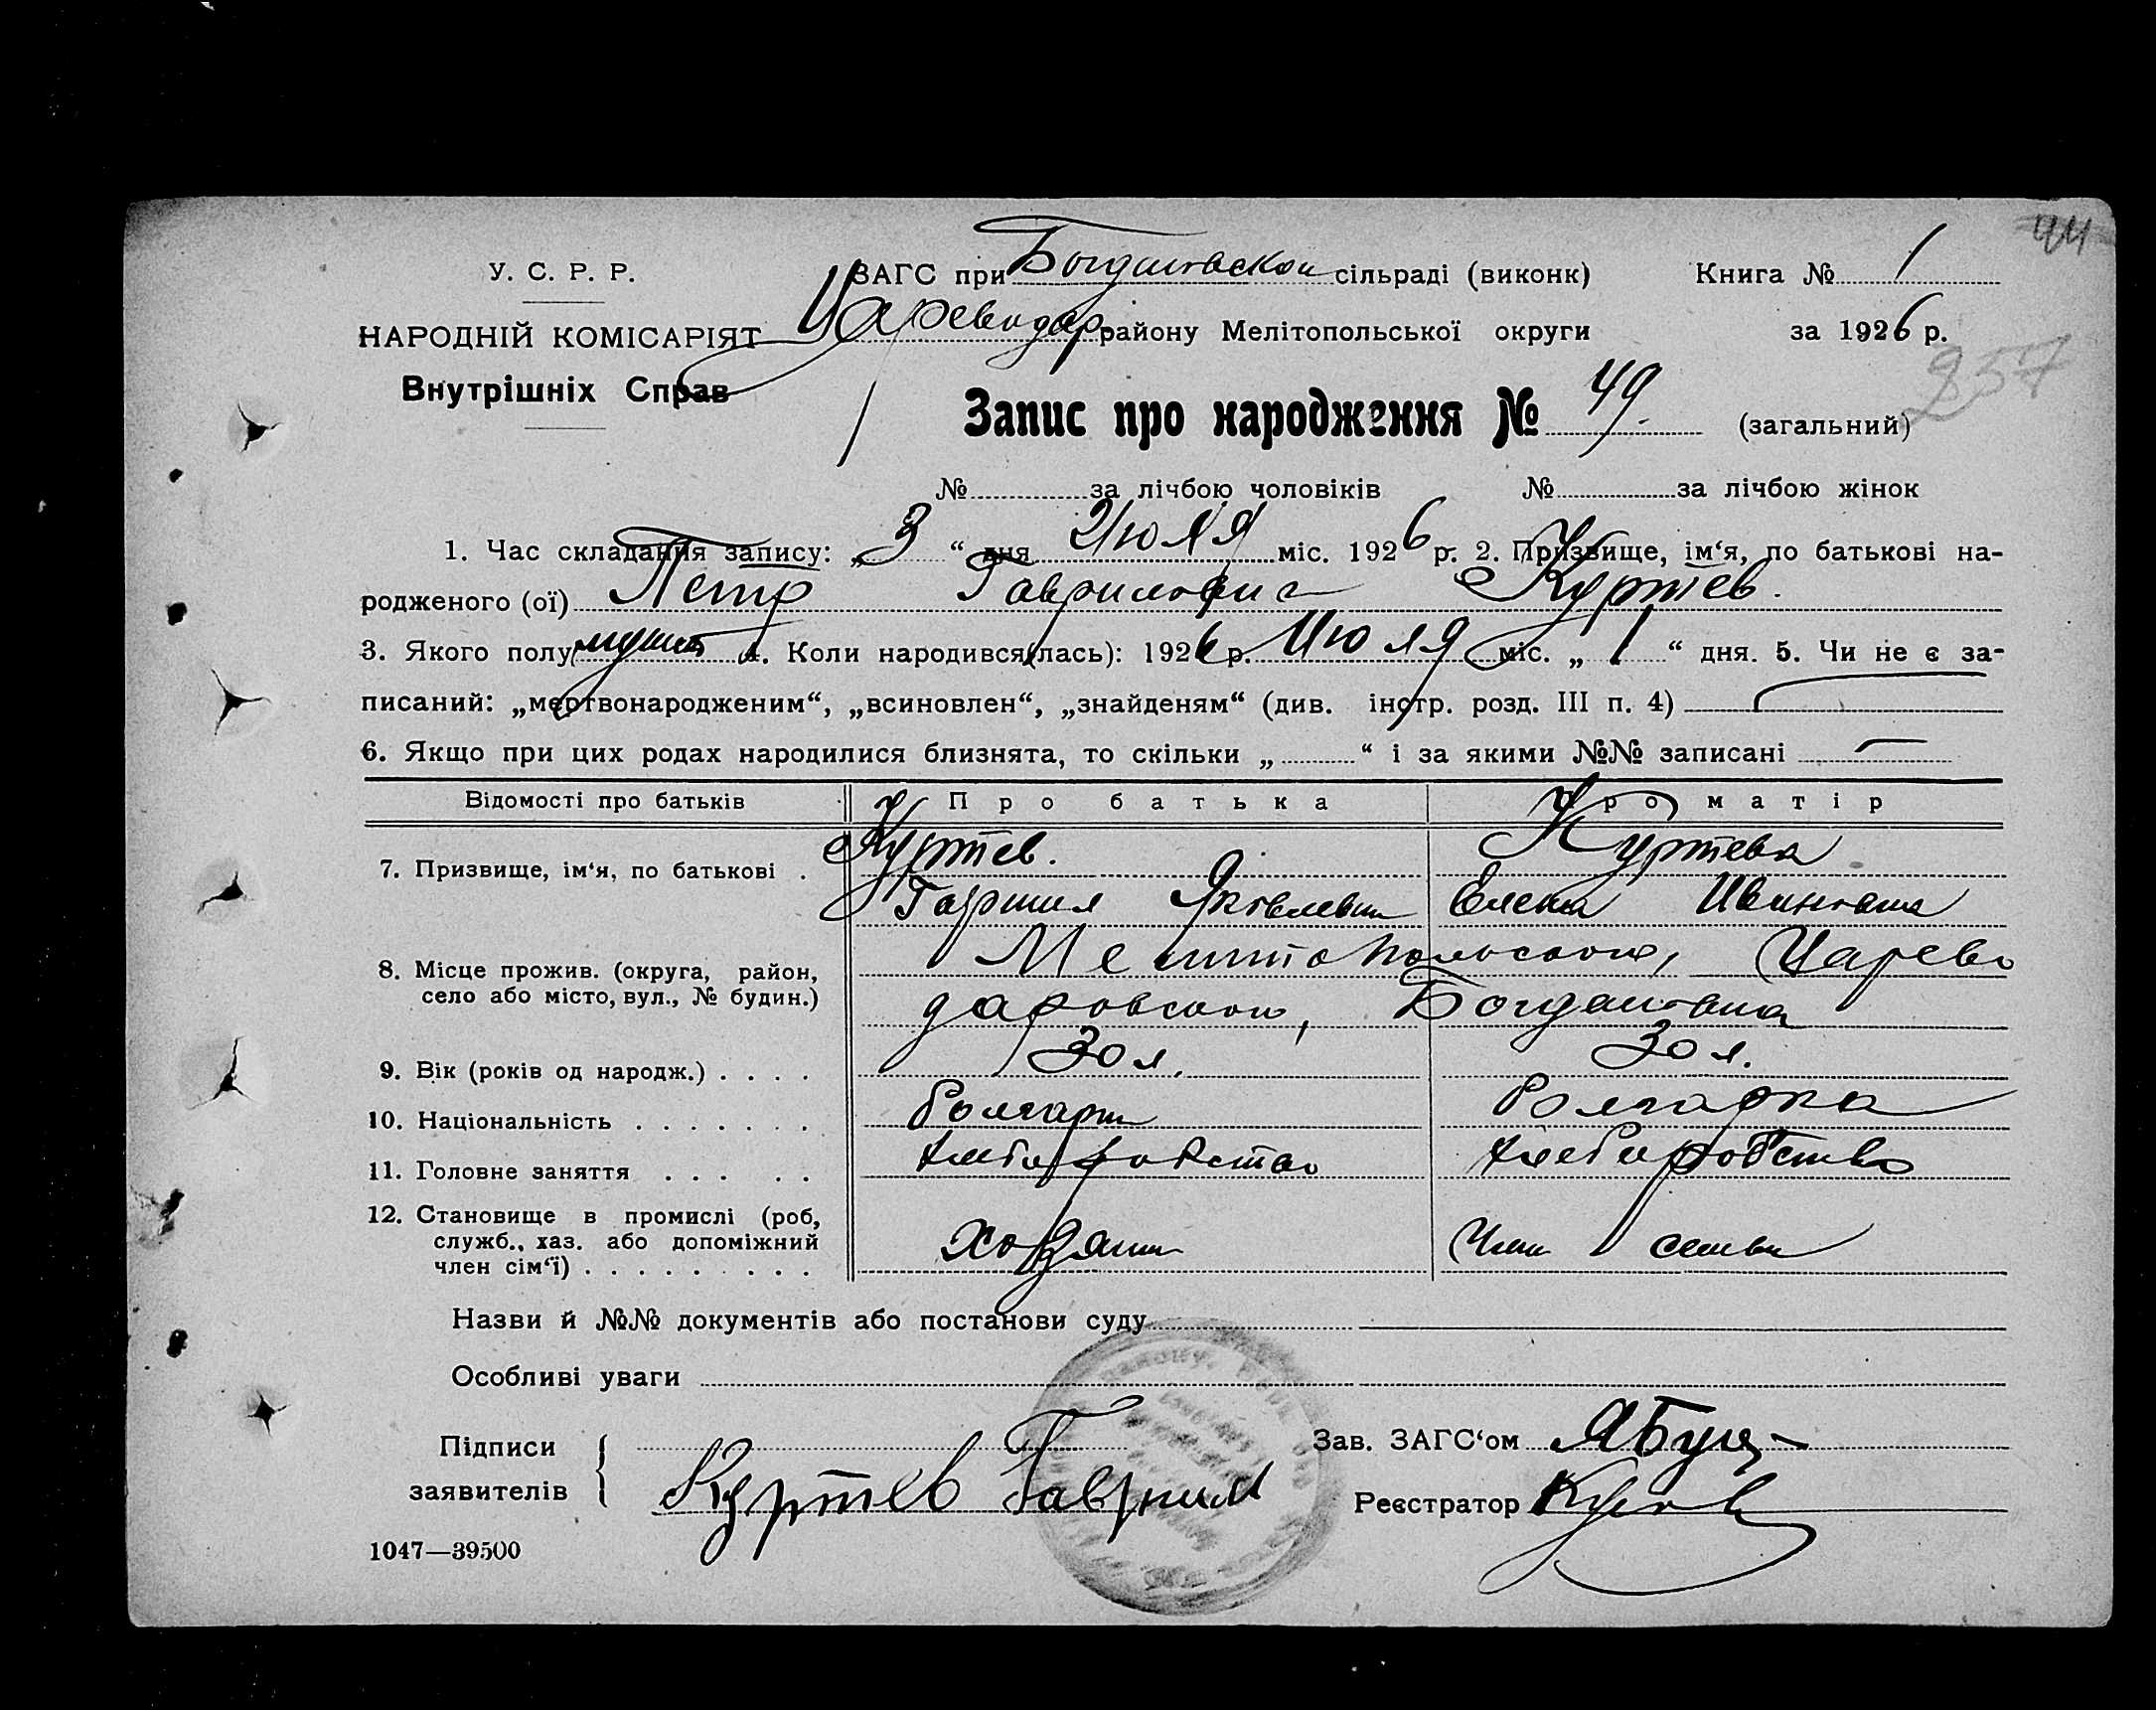 44
У. С. Р. Р.
ЗАГС при Богдановском сільраді (виконк)
Книга № 1
НАРОДНІЙ КОМІСАРІЯТ
Цареводар. району Мелітопольської округи
за 1926 р.
257
Внутрішніх Справ
Запис про народження № 49. (загальний)
№ за лічбою чоловіків № за лічбою жінок
1. Час складання запису: „ 3 “ дня Июля міс. 1926 р. 2. Призвище, ім‘я, по батькові на-
родженого (ої) Петр Гаврилович Куртев.
3. Якого полу 4. Коли народився(лась): 1926 р. Июля міс. „ 1 “ дня. 5. Чи не є за-
писаний: „мертвонародженим“, „всиновлен“, „знайденям“ (див. інстр. розд. III п. 4)
6. Якщо при цих родах народилися близнята, то скільки „ “ і за якими №№ записані
Відомості про батьків Про батька Про матір
7. Призвище, ім‘я, по батькові . Куртев. Куртева
Гаврил Яковлевич Елена Ивановна
8. Місце прожив. (округа, район, Мелитопольского, Царево
село або місто, вул., № будин.) даровского, Богдановка
9. Вік (років од народж.) . . . . 30 л. 30 л.
10. Національність . . . . . . . Болгарин Болгарка
11. Головне заняття . . . . . Хлеборобство Хлеборобство
12. Становище в промислі (роб,
служб., хаз. або допоміжний Хозяин Член семьи
член сім‘ї) . . . . . . . . .
Назви й №№ документів або постанови суду
Особливі уваги
Підписи
заявителів
Куртев Гавриил
Зав. ЗАГС‘ом
Реєстратор
1047—39500